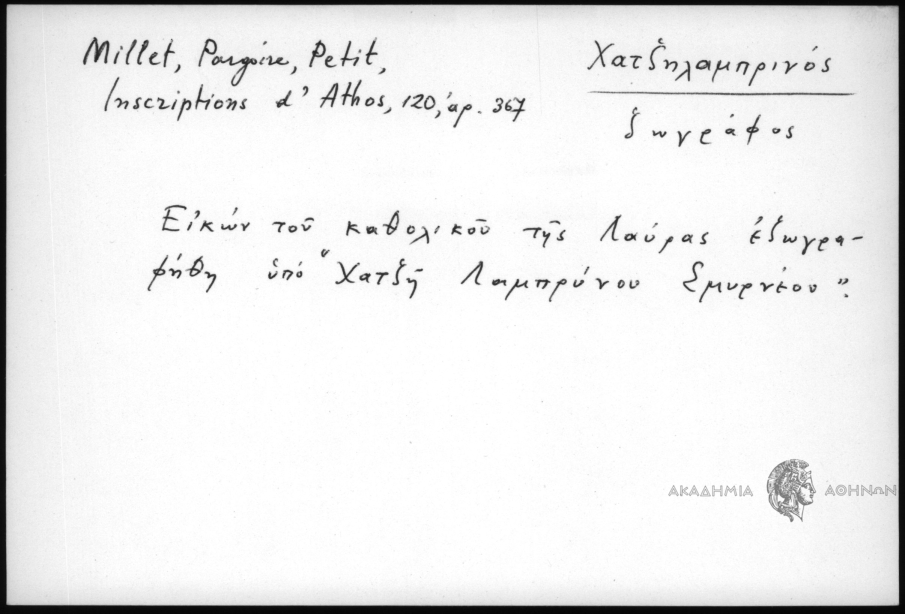 Millet, Pargoire, Petit,
Inscriptions d' Athos, 120, ἀρ. 367
Χατζηλαμπρινός
ζωγράφος
Εἰκών τοῦ καθολικοῦ τῆς Λαύρας ἐζωγρα-
φήθη ὑπό "Χατζῆ Λαμπρύνου Σμυρνέου".
ΑΚΑΔΗΜΙΑ ΑΘΗΝΩΝ